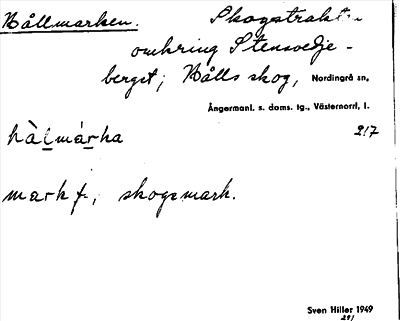 Bållmarken. Skogstrakten
omkring Stensvedje-
berget; Bålls skog, Nordingrå sn,
Ångermanl. s. doms. tg., Västernorrl. l.
217
mark f, skogsmark.
Sven Hiller 1949